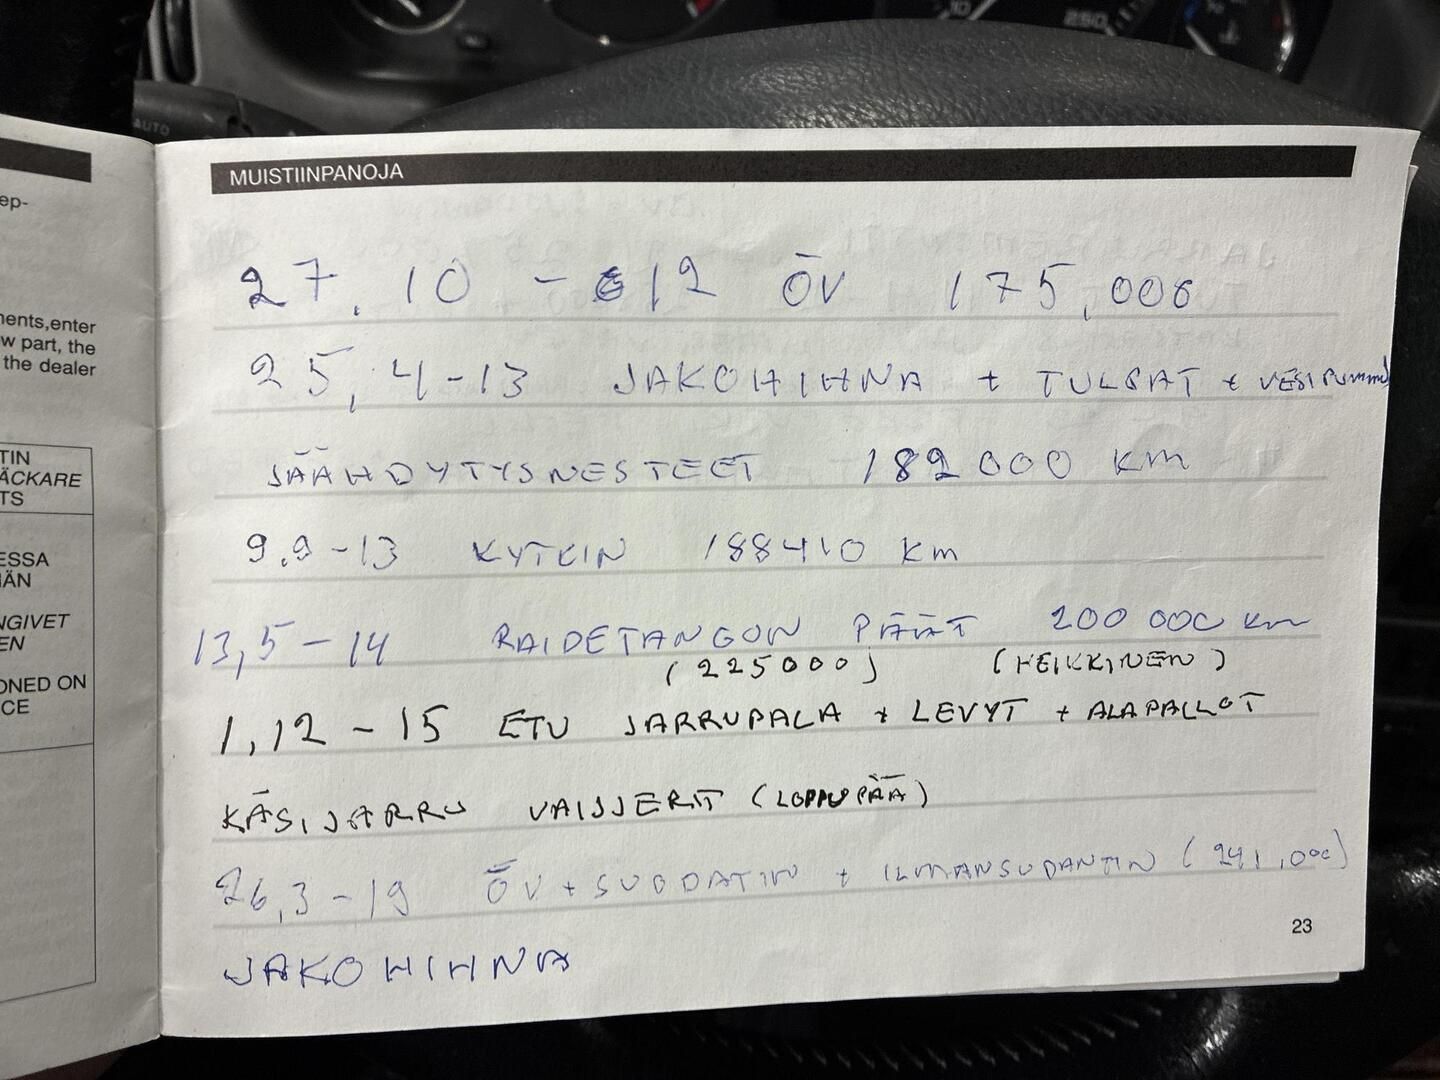 AUTO
10
250
ep-
nents,enter
w part, the
the dealer
TIN
ÄCKARE
TS
ESSA
ÄN
NGIVET
EN
ONED ON
CE
MUISTIINPANOJA
27.10 - 12 ÖV 175,000
25,4-13 JAKOHIHNA + TULPAT + VESIPUMMU
JÄÄHDYTYSNESTEET 182000 KM
9.9-13 KYTKIN 188410 KM
13,5-14 RAIDETANGON PÄÄT 200 000 KM
(225000) (HEIKKINEN)
1,12-15 ETU JARRUPALA + LEVYT + ALAPALLOT
KÄSIJARRU VAIJJERIT (LOPPUPÄÄ)
26,3-19 ÖV + SUODATIN + ILMANSUDANTIN (241,000)
JAKOHIHNA
23